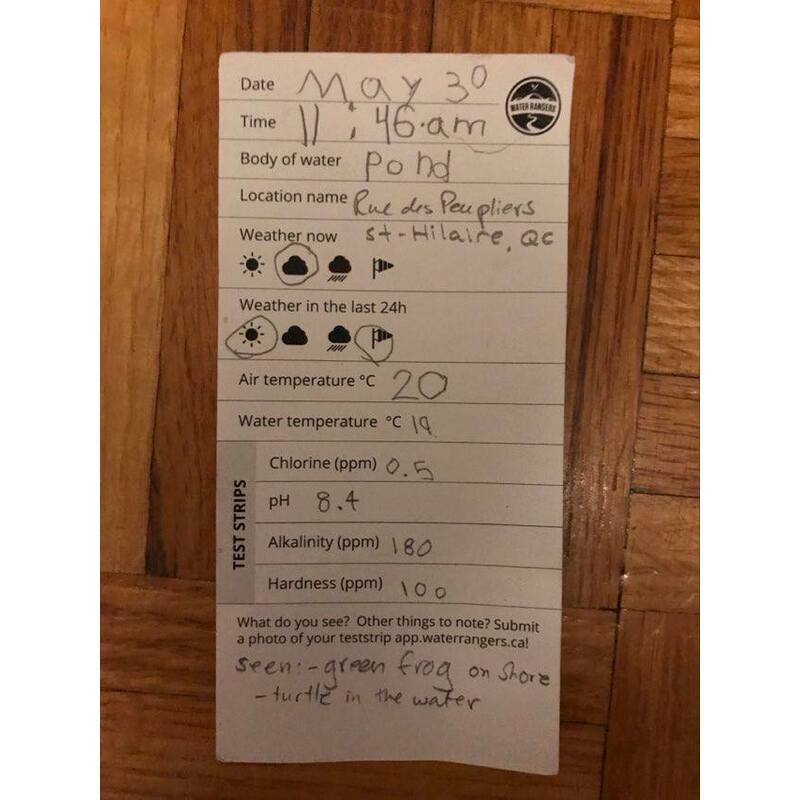 Date May 30
WATER RANGERS
Time 11:46.am
Body of water pond
Location name Rue des Peupliers
Weather now St-Hilaire, QC
Weather in the last 24h
Air temperature °C 20
Water temperature °C 19
TEST STRIPS
Chlorine (ppm) 0.5
pH 8.4
Alkalinity (ppm) 180
Hardness (ppm) 100
What do you see? Other things to note? Submit
a photo of your teststrip app.waterrangers.ca!
seen: - green frog on shore
- turtle in the water